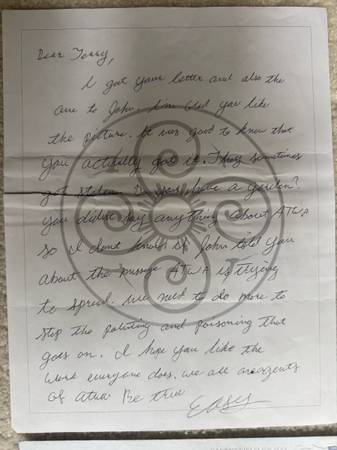 Dear Terry,
I got your letter and also the
one to John. I'm glad you like
the picture. It was good to know that
you actually got it. They sometimes
get stolen. Do you have a garden?
you didn't say anything about ATWA
so I don't know if John told you
about the message ATWA is trying
to spread. We need to do more to
stop the polluting and poisoning that
goes on. I hope you like the
work everyone does. we are all
of atwa Be true